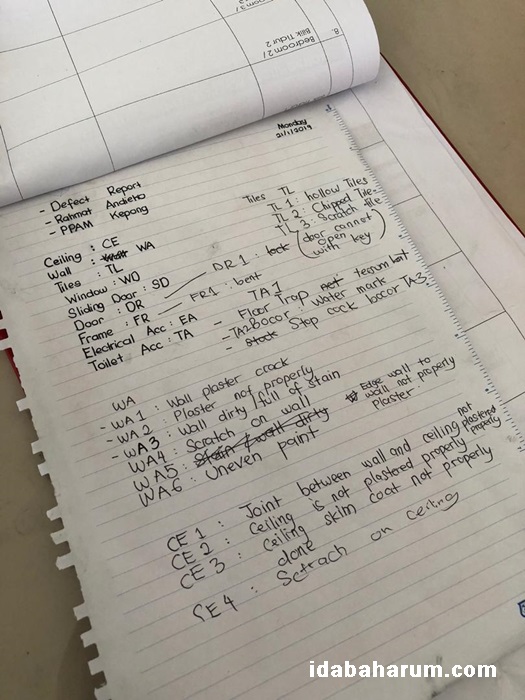 8.
Bedroom 2 /
Bilik Tidur 2
Monday
21/1/2019
- Defect Report
- Rahmat Andieka
- PPAM Kepong
Ceiling : CE
Wall : WA
Tiles : TL
Window : WO
Sliding Door : SD
Door : DR
Frame : FR
Electrical Acc : EA
Toilet Acc : TA
Tiles TL
TL 1 : hollow Tiles
TL 2 : Chipped Tile
TL 3 : Scratch tile
DR1 : lock (door cannot
open
with key)
FR1 : bent
TA1
- Floor Trap not
- TA2 Bocor : water mark
- Stock Stop cock bocor TA3
WA
- WA 1 : Wall plaster crack
- WA 2 : Plaster not properly
- WA 3 : Wall dirty / full of stain
WA4 : Scratch on wall
WA5 : Stain / wall dirty
Edge wall to
wall not properly
Plaster
WA6 : Uneven paint
CE 1 : Joint between wall and ceiling not plastered properly
CE 2 : Ceiling is not plastered properly
CE 3 : Ceiling skim coat not properly
done
CE4 : Sctrach on ceiling
idabaharum.com